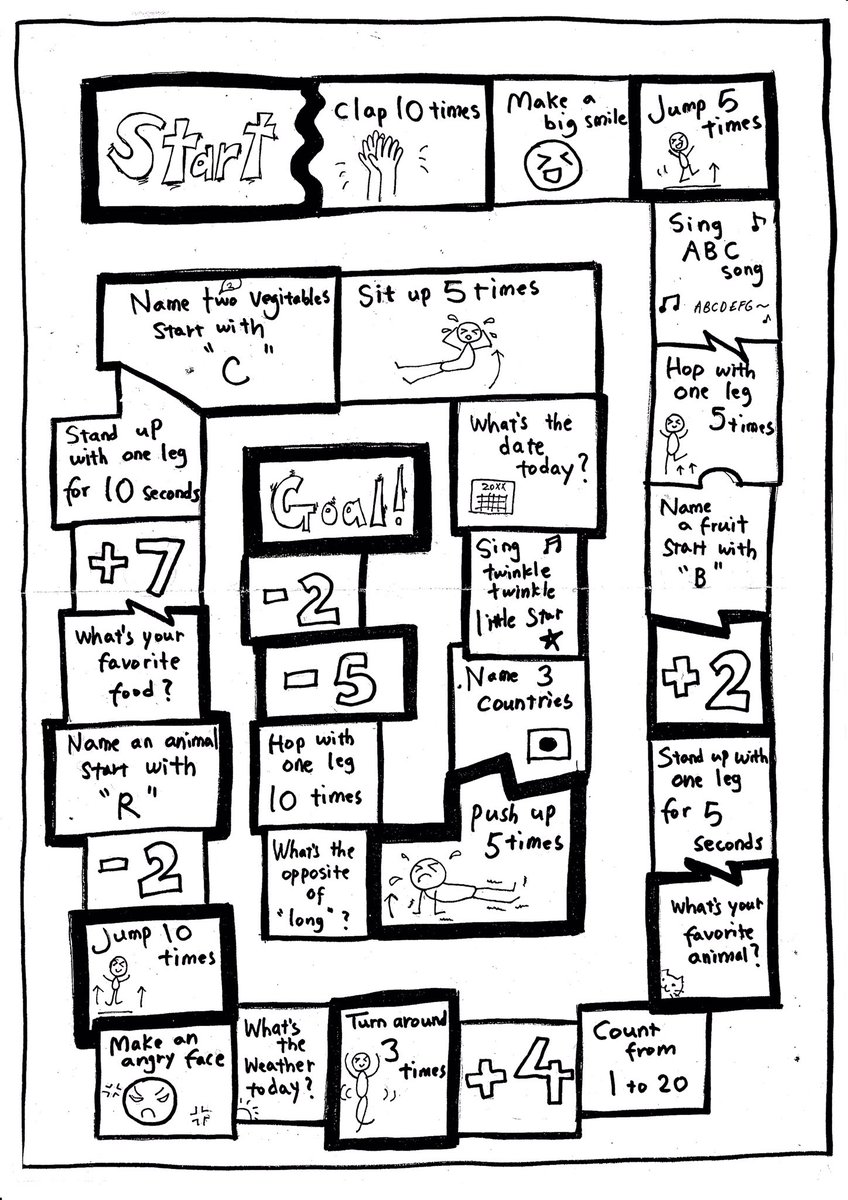 Start
Clap 10 times
Make a
big smile
Jump 5
times
Sing
ABC
song
ABCDEFG~
Hop with
one leg
5 times
Name
a fruit
Start with
"B"
+2
Stand up with
one leg
for 5
seconds
What's your
favorite
animal?
Count
from
1 to 20
+4
Turn around
3
times
What's
the
Weather
today?
Make an
angry face
Jump 10
times
-2
Name an animal
Start with
"R"
What's your
favorite
food?
+7
Stand up
with one leg
for 10 seconds
2
Name two vegitables
Start with
"C"
Sit up 5 times
What's the
date
today?
20XX
Sing
twinkle
twinkle
little Star
Name 3
Countries
Push up
5 times
What's the
opposite
of
"long"?
Hop with
one leg
10 times
-5
-2
Goal!